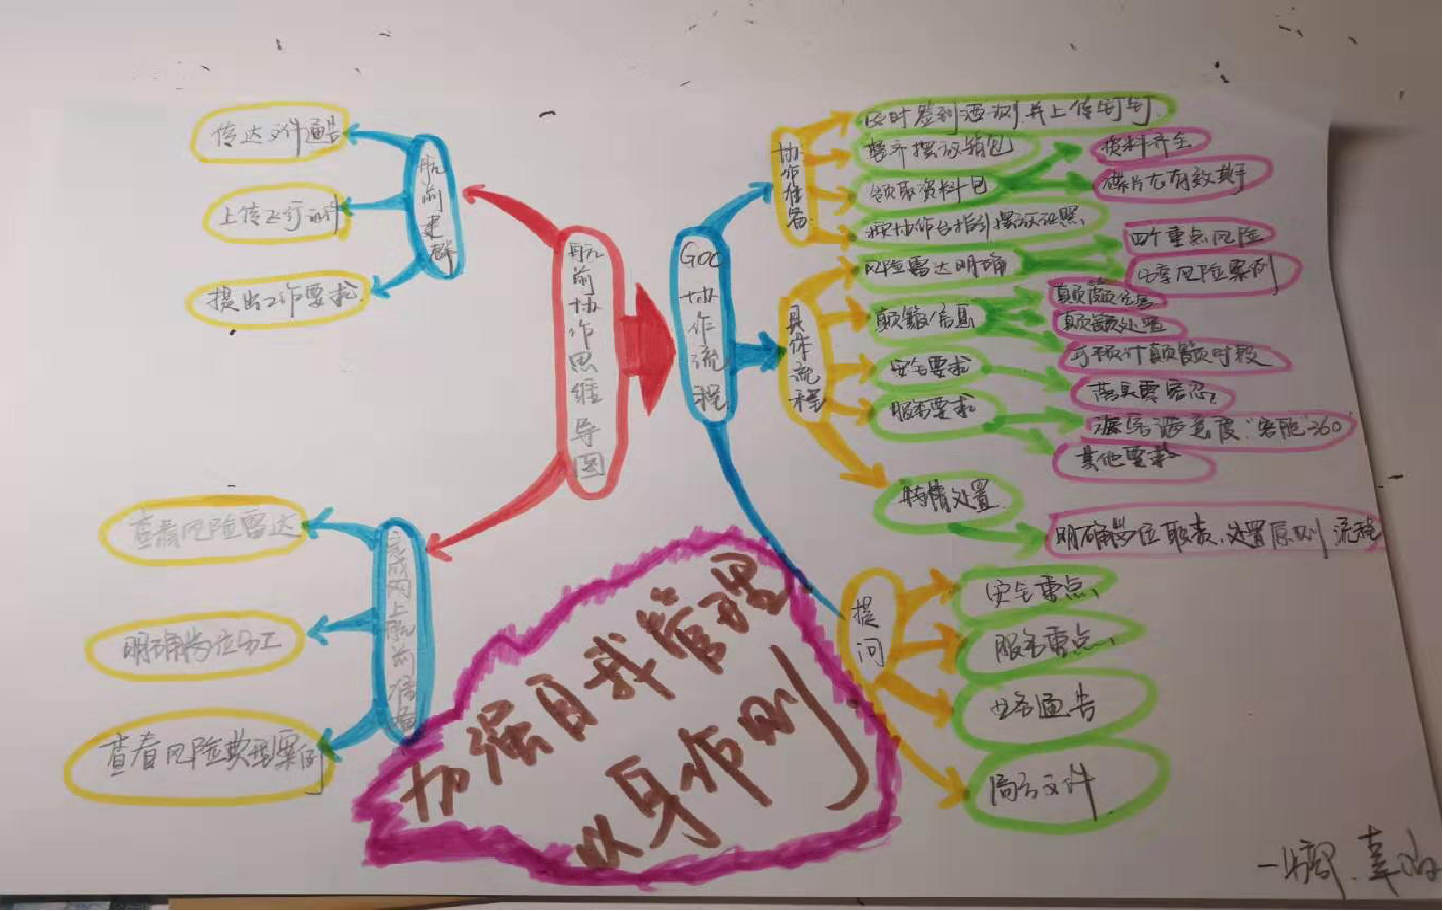 航前协作思维导图
航前建群
传达文件通告
上传飞行文件
提出工作要求
完成网上航前准备
查看风险雷达
明确岗位分工
查看风险典型案例
GOC协作流程
协作准备
及时签到酒测并上传钉钉
整齐摆放箱包
领取资料包
资料齐全
碟片有效
按协作台指引摆放证照
具体流程
风险雷达明确
四个重点风险
四季风险案例
颠簸信息
颠簸处置
可预计颠簸时段
安全要求
服务要求
旅客满意度:客舱360
其他要求
特情处置
明确岗位职责、处置原则 流程
提问
安全重点
服务重点
业务通告
局方文件
加强自我管理
以身作则